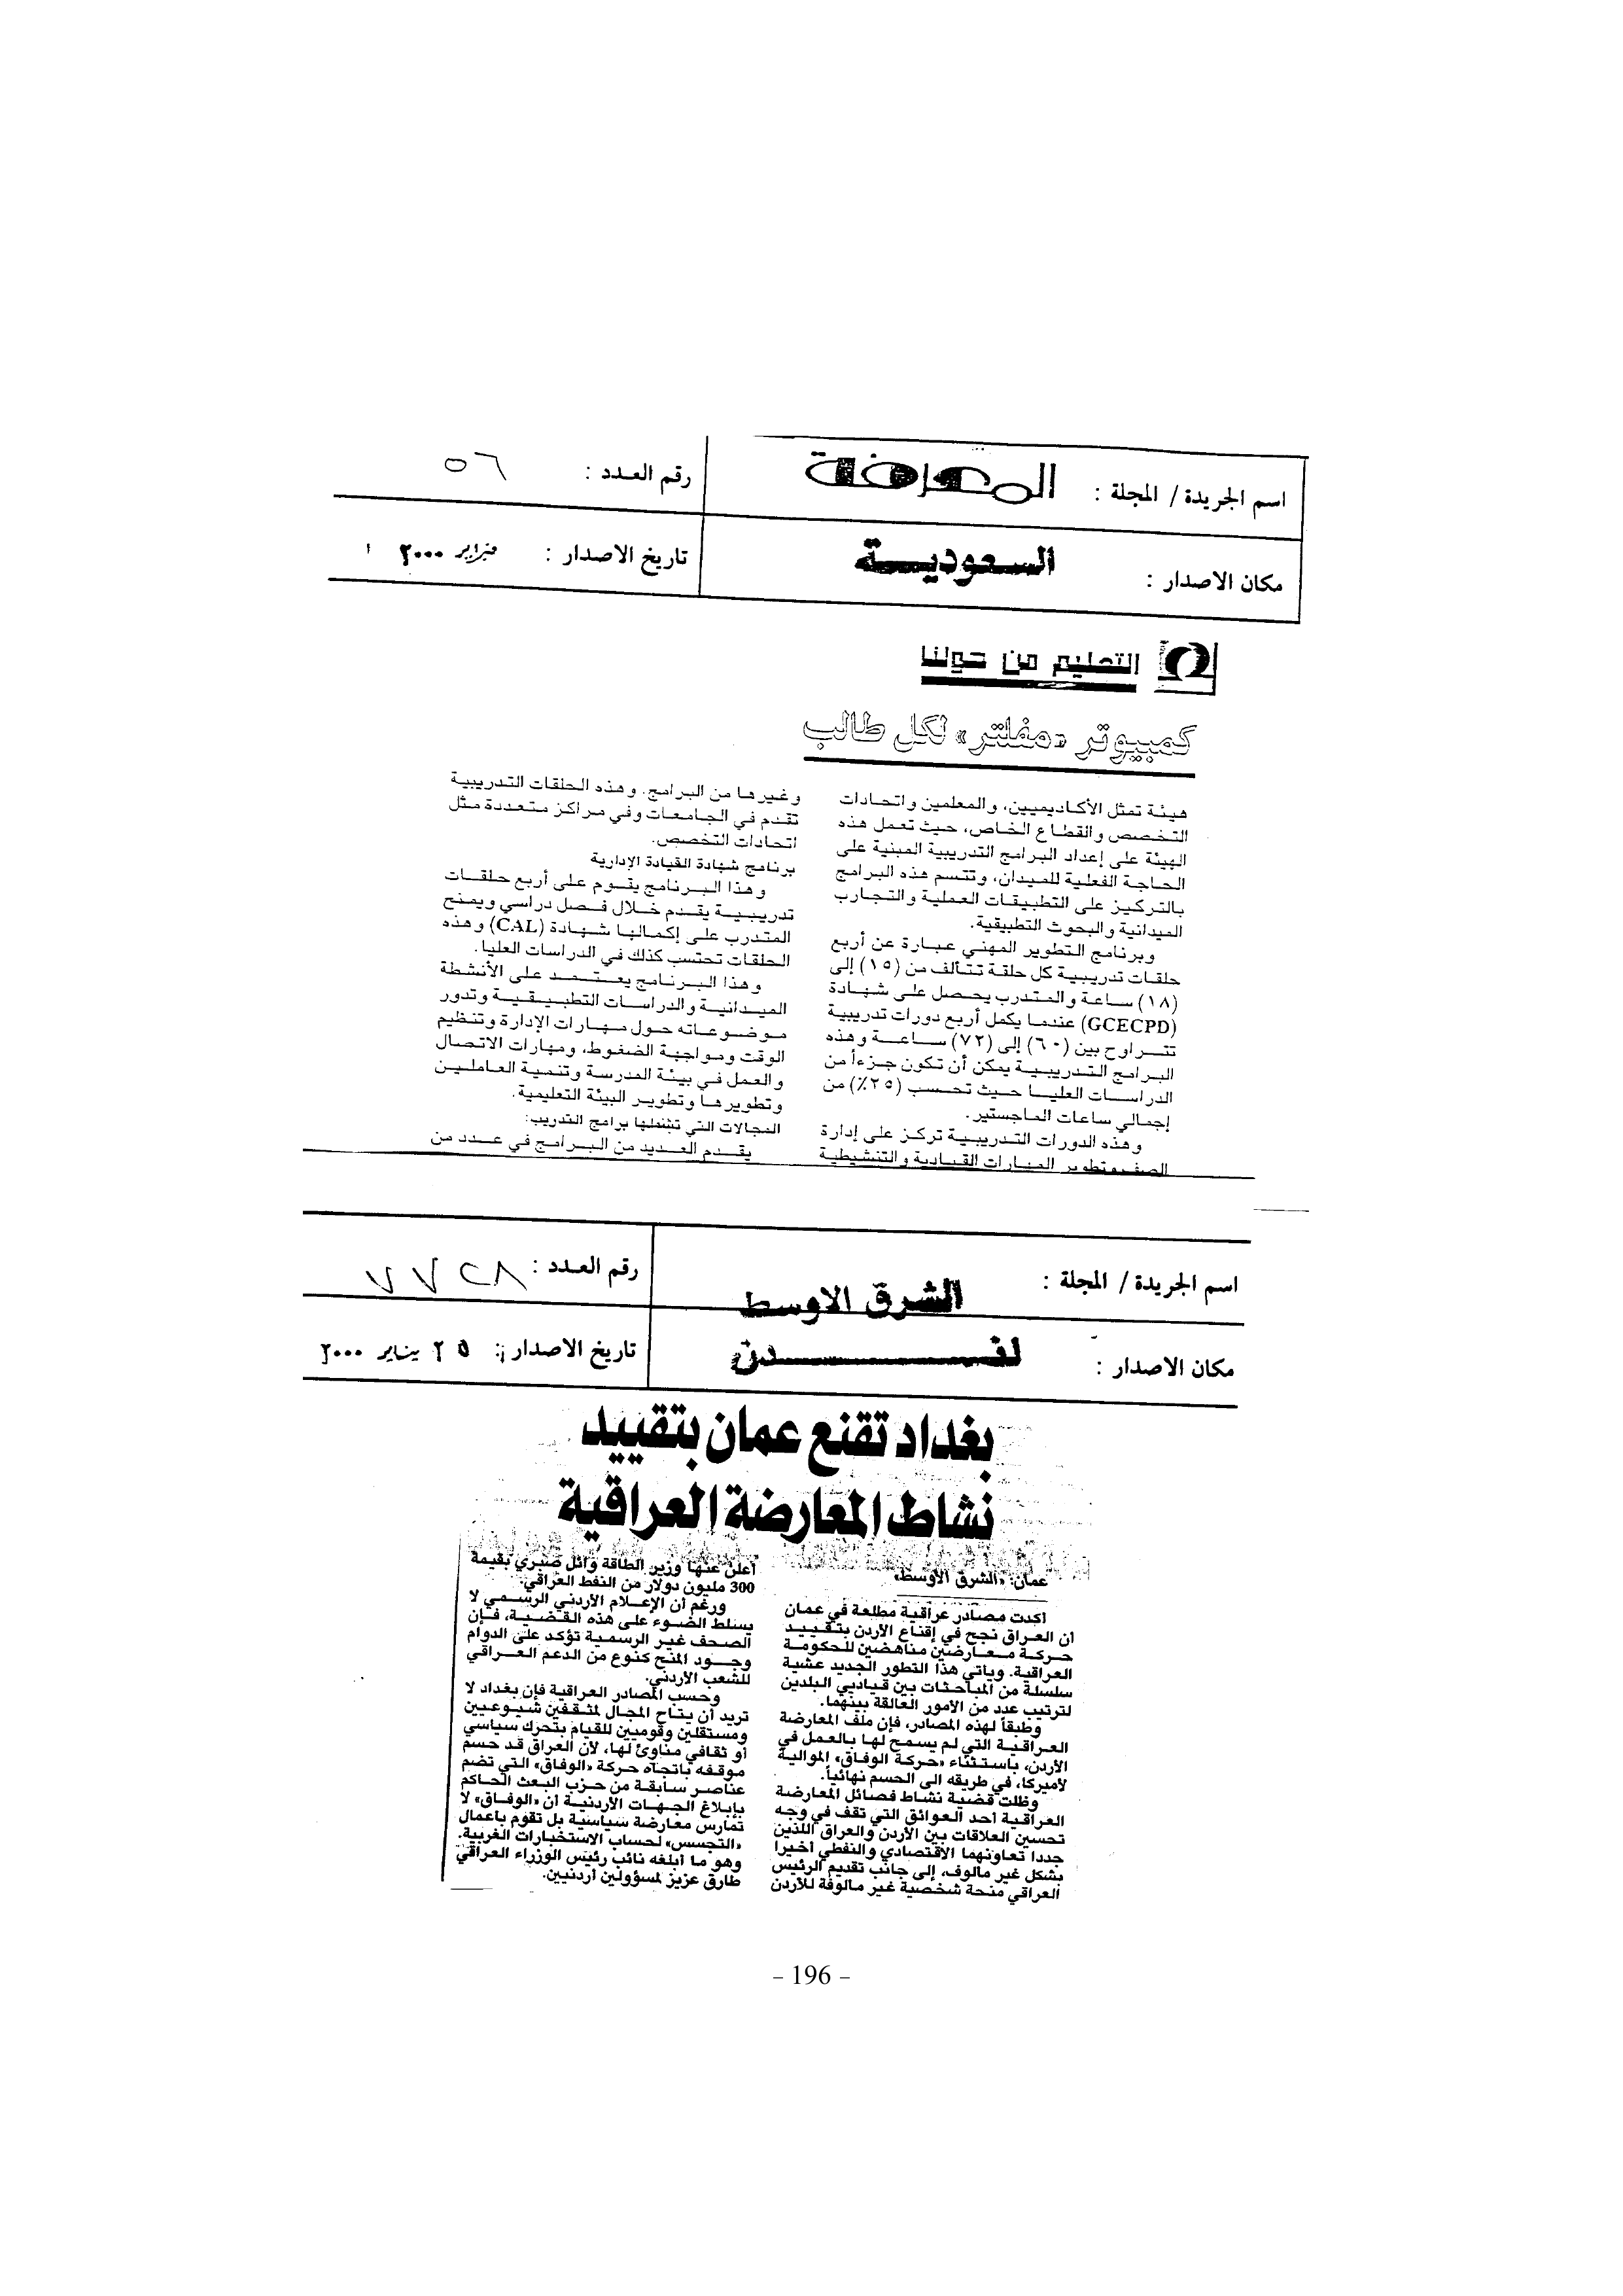 اسم الجريدة / المجلة : المعرفة
رقم العدد : ٥٦
مكان الاصدار : السعودية
تاريخ الاصدار : فبراير ٢٠٠٠
التعليم من حولنا
كمبيوتر «مفلتر» لكل طالب
هيئة تمثل الأكاديميين، والمعلمين واتحادات
التخصص والقطاع الخاص، حيث تعمل هذه
الهيئة على إعداد البرامج التدريبية المبنية على
الحاجة الفعلية للميدان، وتتسم هذه البرامج
بالتركيز على التطبيقات العملية والتجارب
الميدانية والبحوث التطبيقية.
وبرنامج التطوير المهني عبارة عن أربع
حلقات تدريبية كل حلقة تتألف من (١٥) إلى
(١٨) ساعة والمتدرب يحصل على شهادة
(GCECPD) عندما يكمل أربع دورات تدريبية
تتراوح بين (٦٠) إلى (٧٢) ساعة وهذه
البرامج التدريبية يمكن أن تكون جزءاً من
الدراسات العليا حيث تحسب (٢٥٪) من
إجمالي ساعات الماجستير.
وهذه الدورات التدريبية تركز على إدارة
الصف وتطوير المهارات القيادية والتنشيطية
وغيرها من البرامج. وهذه الحلقات التدريبية
تقدم في الجامعات وفي مراكز متعددة مثل
اتحادات التخصص.
برنامج شهادة القيادة الإدارية
وهذا البرنامج يقوم على أربع حلقات
تدريبية يقدم خلال فصل دراسي ويمنح
المتدرب على إكمالها شهادة (CAL) وهذه
الحلقات تحتسب كذلك في الدراسات العليا.
وهذا البرنامج يعتمد على الأنشطة
الميدانية والدراسات التطبيقية وتدور
موضوعاته حول مهارات الإدارة وتنظيم
الوقت ومواجهة الضغوط، ومهارات الاتصال
والعمل في بيئة المدرسة وتنمية العاملين
وتطويرها وتطوير البيئة التعليمية.
المجالات التي تشملها برامج التدريب:
يقدم العديد من البرامج في عدد من
اسم الجريدة / المجلة : الشرق الاوسط
رقم العدد : ٧٧٢٨
مكان الاصدار : لندن
تاريخ الاصدار : ٢٥ يناير ٢٠٠٠
بغداد تقنع عمان بتقييد
نشاط المعارضة العراقية
عمان: «الشرق الأوسط»
أكدت مصادر عراقية مطلعة في عمان
أن العراق نجح في إقناع الأردن بتقييد
حركة معارضين مناهضين للحكومة
العراقية. ويأتي هذا التطور الجديد عشية
سلسلة من المباحثات بين قياديي البلدين
لترتيب عدد من الأمور العالقة بينهما.
وطبقاً لهذه المصادر، فإن ملف المعارضة
العراقية التي لم يسمح لها بالعمل في
الأردن، باستثناء «حركة الوفاق» الموالية
لأميركا، في طريقه الى الحسم نهائياً.
وظلت قضية نشاط فصائل المعارضة
العراقية أحد العوائق التي تقف في وجه
تحسين العلاقات بين الأردن والعراق اللذين
جددا تعاونهما الاقتصادي والنفطي أخيرا
بشكل غير مألوف، إلى جانب تقديم الرئيس
العراقي منحة شخصية غير مألوفة للأردن
أعلن عنها وزير الطاقة وائل صبري بقيمة
300 مليون دولار من النفط العراقي.
ورغم أن الإعلام الأردني الرسمي لا
يسلط الضوء على هذه القضية، فإن
الصحف غير الرسمية تؤكد على الدوام
وجود المنح كنوع من الدعم العراقي
للشعب الأردني.
وحسب المصادر العراقية فإن بغداد لا
تريد أن يتاح المجال لمثقفين شيوعيين
ومستقلين وقوميين للقيام بتحرك سياسي
أو ثقافي مناوئ لها، لأن العراق قد حسم
موقفه باتجاه حركة «الوفاق» التي تضم
عناصر سابقة من حزب البعث الحاكم
بإبلاغ الجهات الأردنية أن «الوفاق» لا
تمارس معارضة سياسية بل تقوم بأعمال
«التجسس» لحساب الاستخبارات الغربية.
وهو ما أبلغه نائب رئيس الوزراء العراقي
طارق عزيز لمسؤولين أردنيين.
- 196 -